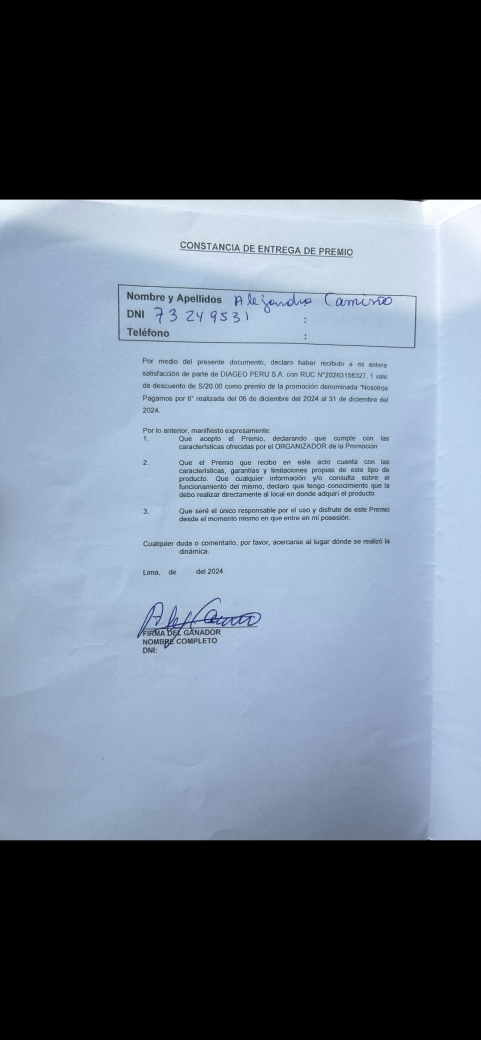 CONSTANCIA DE ENTREGA DE PREMIO
Nombre y Apellidos Alejandra Camino
DNI 73249531 :
Teléfono :
Por medio del presente documento, declaro haber recibido a mi entera
satisfacción de parte de DIAGEO PERU S.A. con RUC N°20263158327, 1 vale
de descuento de S/20.00 como premio de la promoción denominada "Nosotros
Pagamos por ti" realizada del 06 de diciembre del 2024 al 31 de diciembre del
2024.
Por lo anterior, manifiesto expresamente:
1. Que acepto el Premio, declarando que cumple con las
características ofrecidas por el ORGANIZADOR de la Promoción
2. Que el Premio que recibo en este acto cuenta con las
características, garantías y limitaciones propias de este tipo de
producto. Que cualquier información y/o consulta sobre el
funcionamiento del mismo, declaro que tengo conocimiento que la
debo realizar directamente al local en donde adquirí el producto
3. Que seré el único responsable por el uso y disfrute de este Premio
desde el momento mismo en que entre en mi posesión.
Cualquier duda o comentario, por favor, acercarse al lugar dónde se realizó la
dinámica.
Lima, de del 2024
FIRMA DEL GANADOR
NOMBRE COMPLETO
DNI: